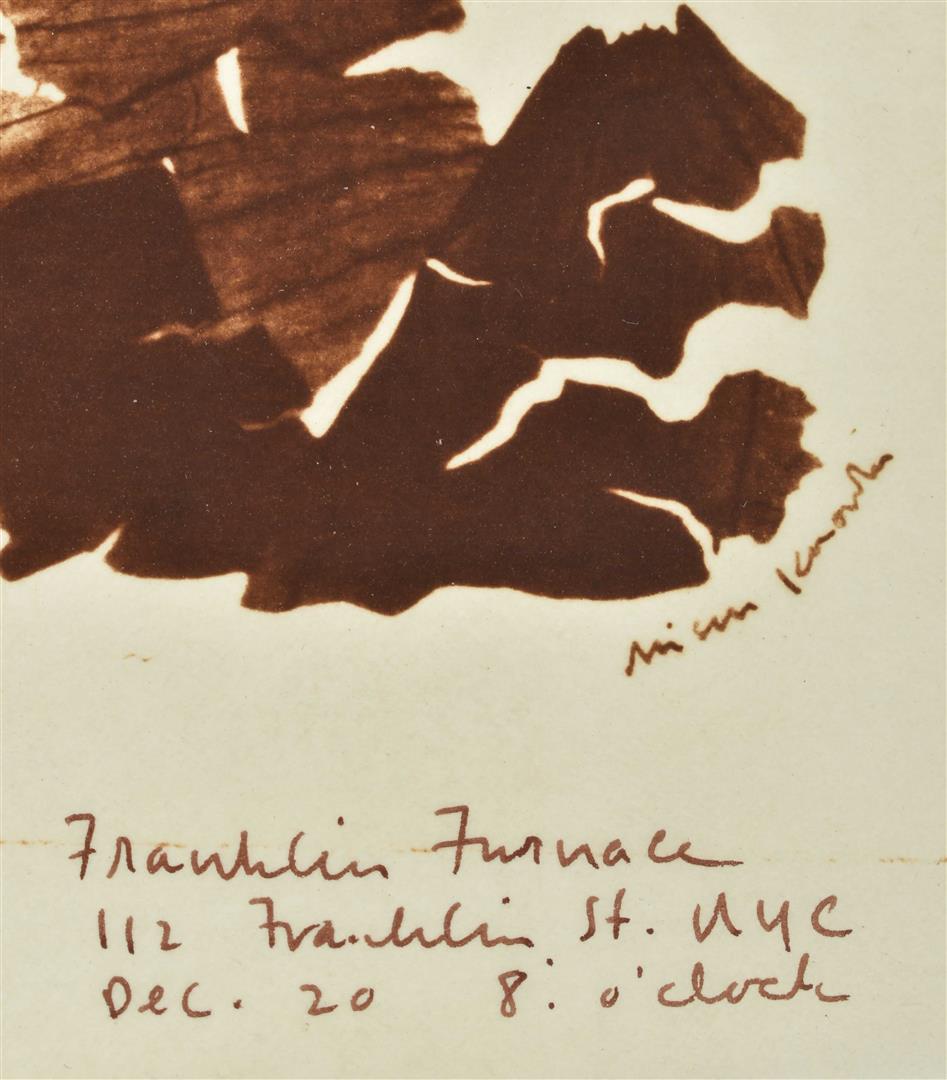 Alison Knowles
Franklin Furnace
112 Franklin St. NYC
Dec. 20 8: o'clock